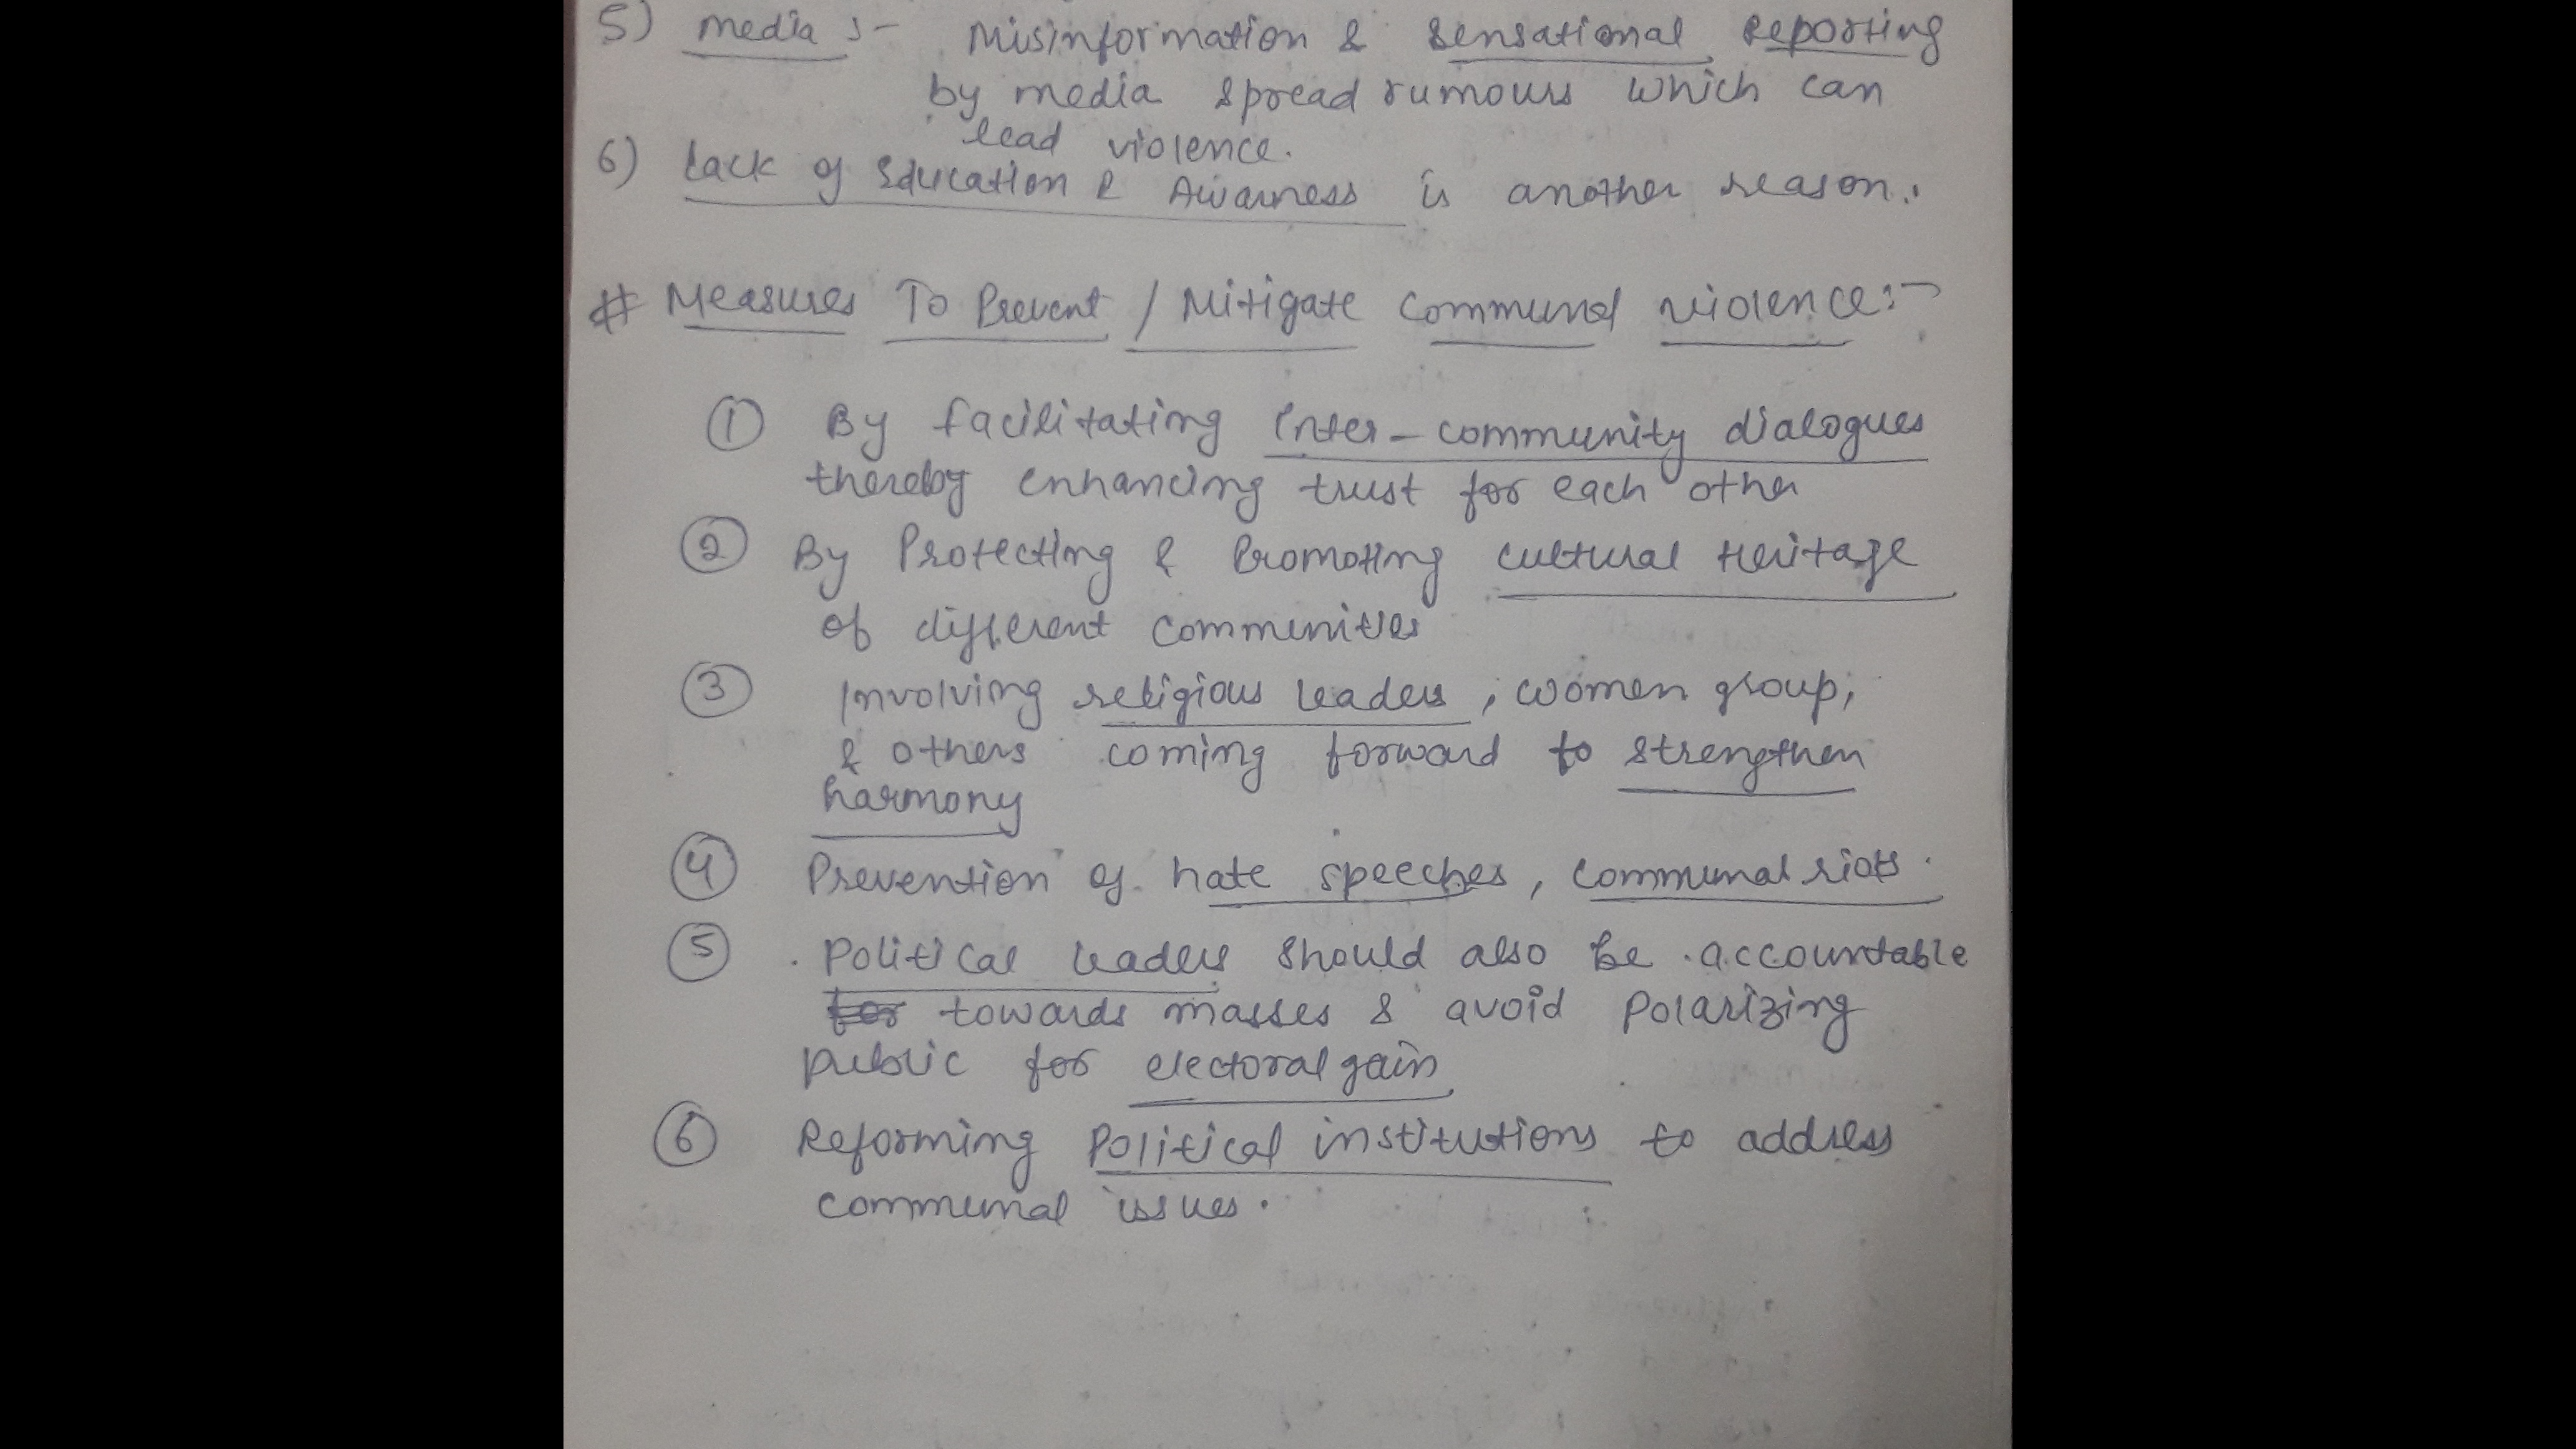 5) Media :- Misinformation & Sensational Reporting
by media spread rumours which can
lead violence.
6) Lack of Education & Awarness is another reason.
# Measures To Prevent / Mitigate Communal violence :-
① By facilitating Inter-community dialogues
thereby enhancing trust for each other
② By Protecting & Promoting cultural Heritage
of different communities
③ Involving religious leaders, women group,
& others coming forward to strengthen
harmony
④ Prevention of hate speeches, communal riots.
⑤ Political leaders should also be accountable
for towards masses & avoid Polarizing
public for electoral gain
⑥ Reforming Political institutions to address
communal issues.